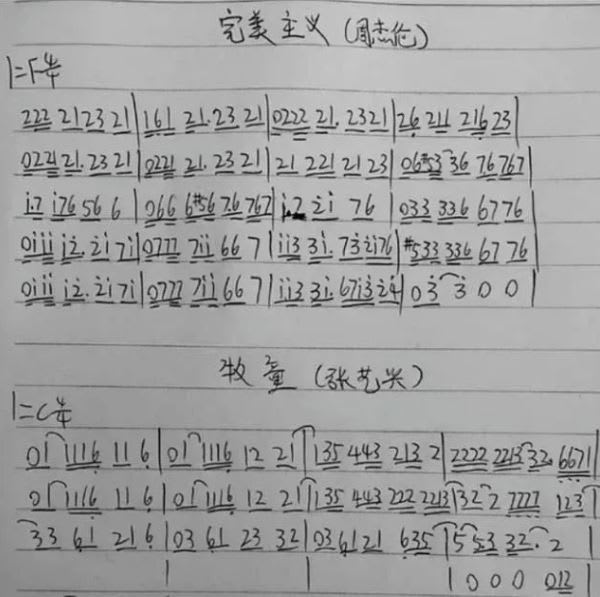 完美主义（周杰伦）
1=F 4/4
222 2123 21|161 21.23 21|0222 21. 2321|26 211 21623
0221 21.23 21|0221 21.23 21|21 221 21 23|06#53 36 76767|
i7 i76 56 6 |066 6#56 76 767|i.7 2i 76 |033 336 6776|
0iii i2.2i7i|0777 7ii 66 7|ii3 3i.732i76|#533 336 67 76|
0iii i2.2i7i|0777 7ii 66 7|ii3 3i.67i324|03 3 0 0|
牧童（张艺兴）
1=C 4/4
01 1116 11 6|01 1116 12 21|135 443 213 2|2222 2213 32.6671|
01 1116 11 6|01 1116 12 21|135 443 222 2213|32 2 7777 123|
33 61 21 6|03 61 23 32|036121 635|5 53 32. 2 |
| | |0 0 0 012|